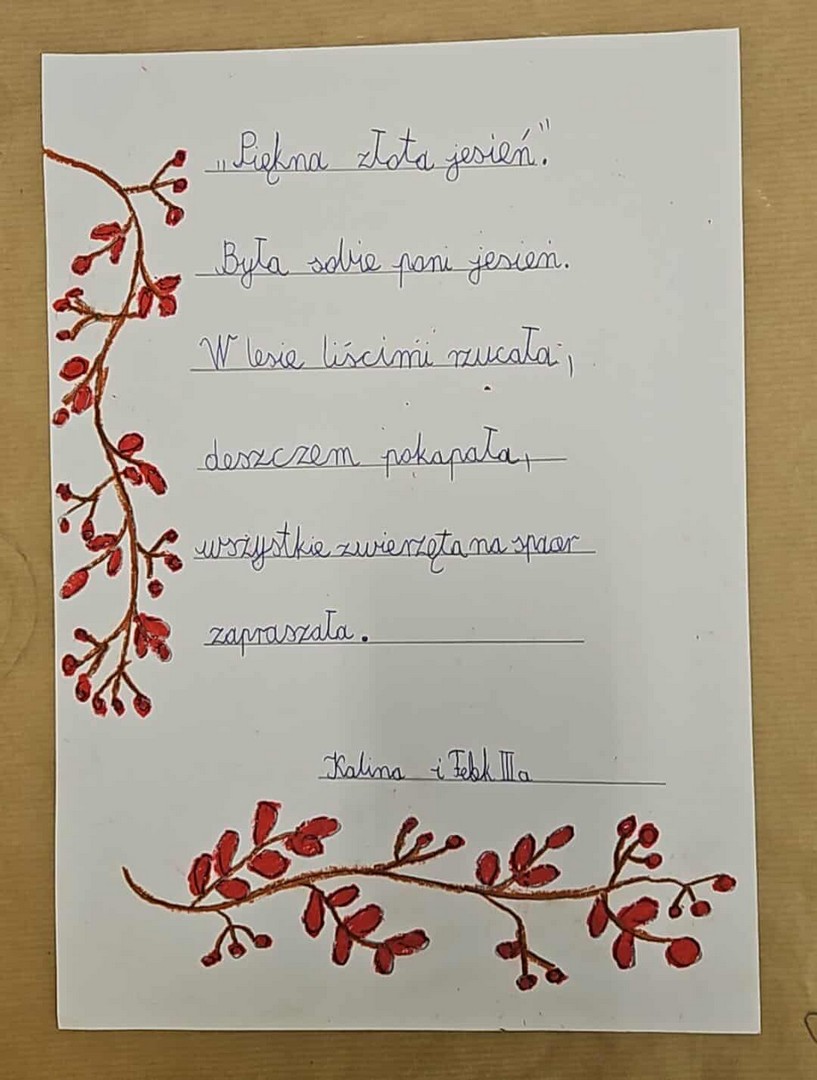 „Piękna złota jesień."
Była sobie pani jesień.
W lesie liścimi rzucała,
deszczem pokapała,
wszystkie zwierzęta na spacer
zapraszała.
Kalina i IIIa